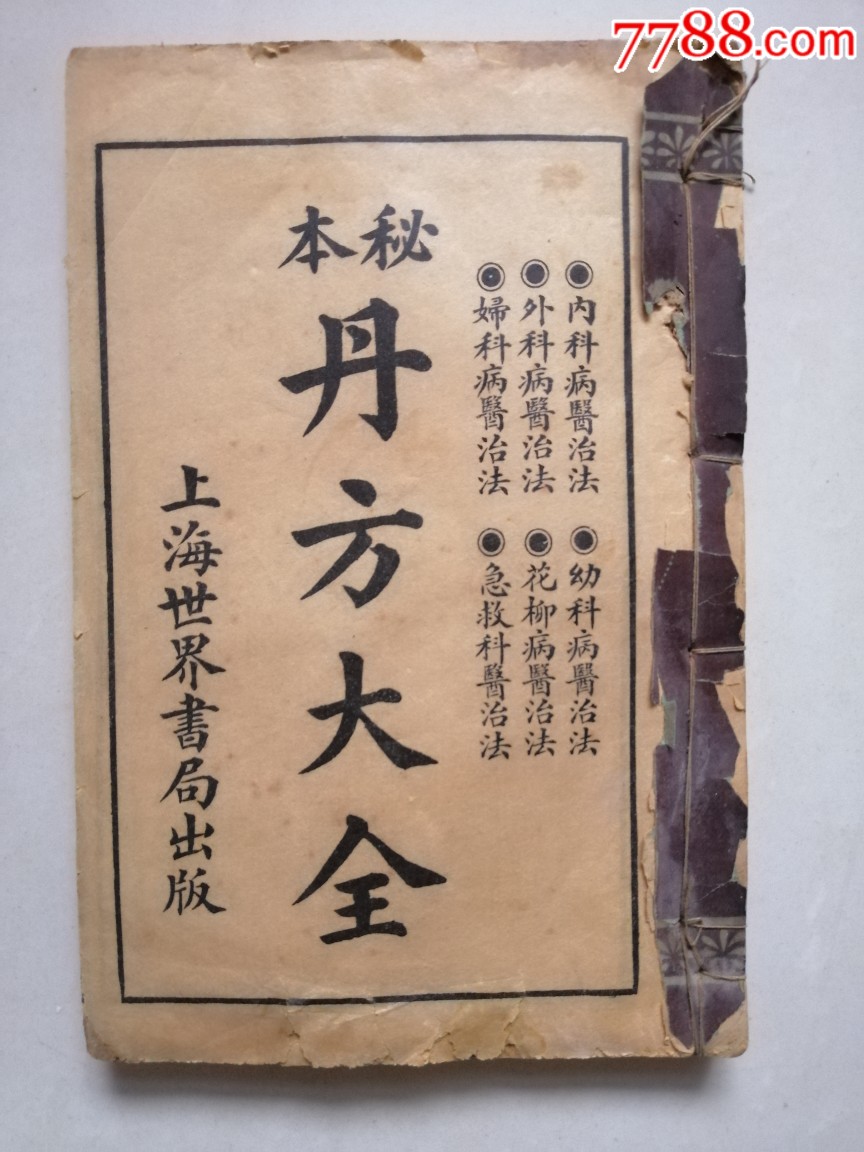 7788.com
内科病醫治法
幼科病醫治法
外科病醫治法
花柳病醫治法
婦科病醫治法
急救科醫治法
秘本
丹方大全
上海世界書局出版